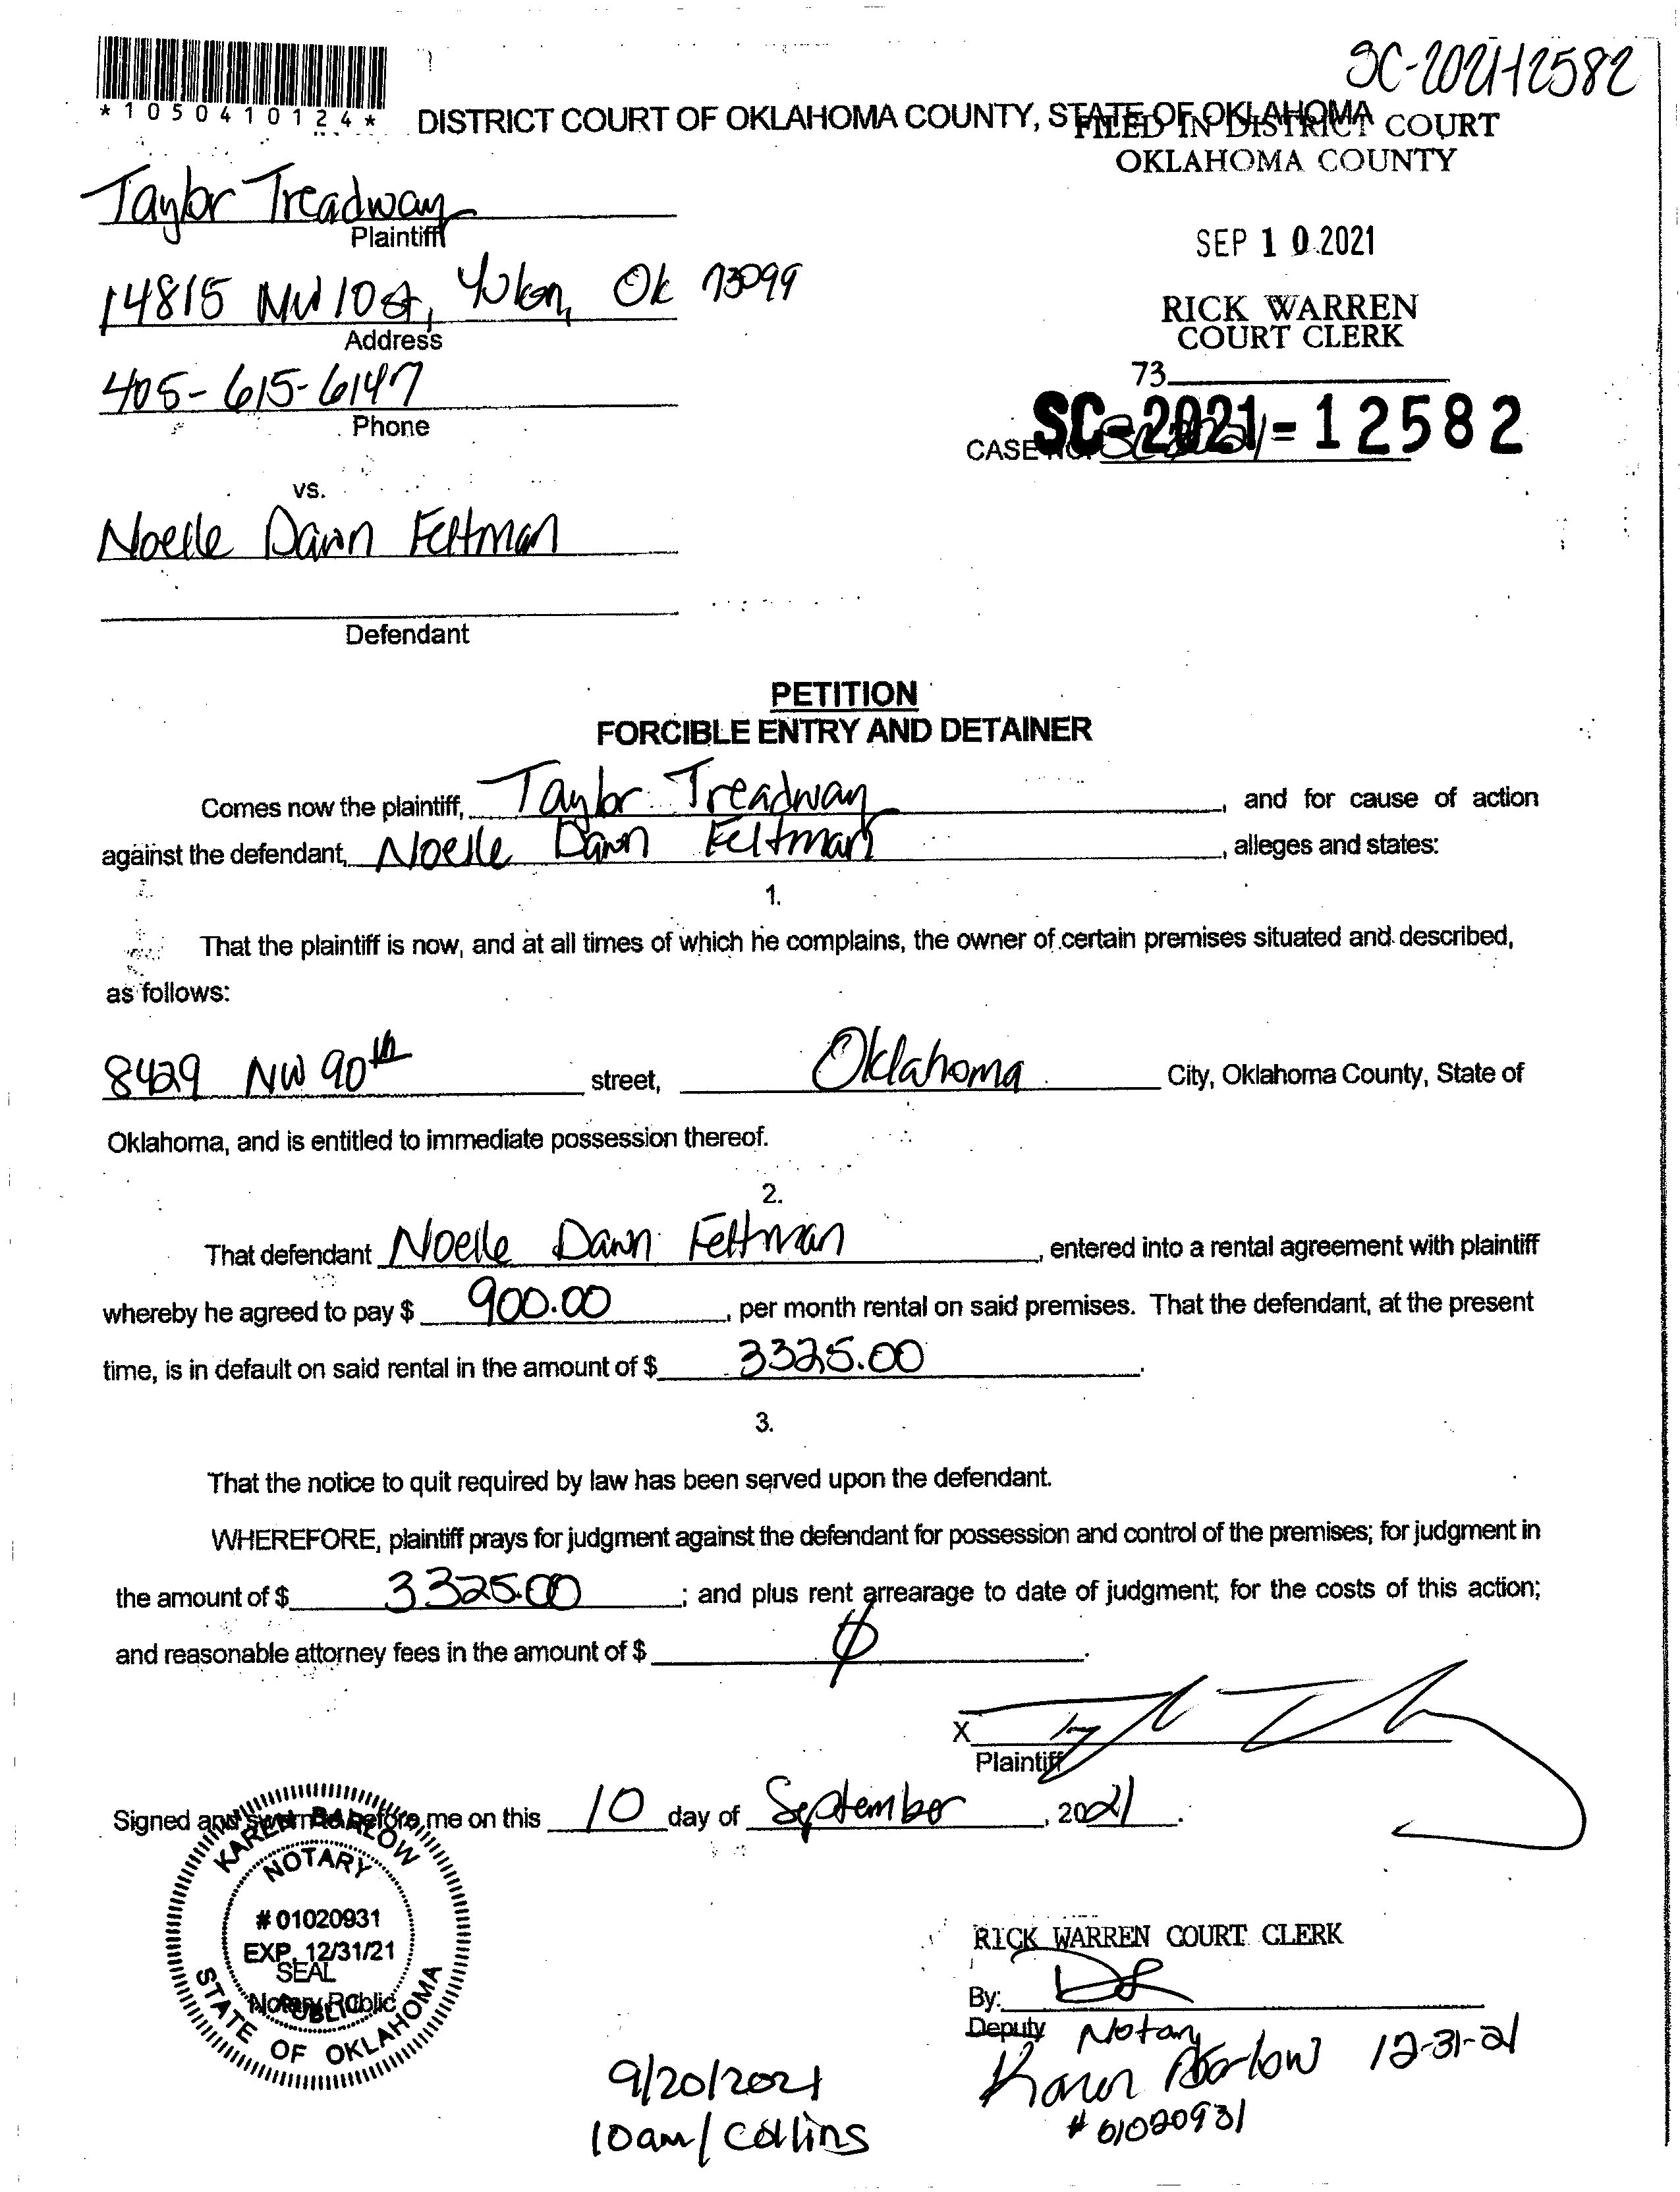 SC-2021-12582
*1050410124*
DISTRICT COURT OF OKLAHOMA COUNTY, STATE OF OKLAHOMA
FILED IN DISTRICT COURT
OKLAHOMA COUNTY
Taylor Treadway
Plaintiff
SEP 10 2021
14815 NW 10 st, Yukon, Ok 73099
Address
RICK WARREN
COURT CLERK
405-615-6147
Phone
73
CASE NO. SC-2021-12582
vs.
Noelle Dawn Feltman
Defendant
PETITION
FORCIBLE ENTRY AND DETAINER
Comes now the plaintiff, Taylor Treadway, and for cause of action
against the defendant, Noelle Dawn Feltman, alleges and states:
1.
That the plaintiff is now, and at all times of which he complains, the owner of certain premises situated and described,
as follows:
8429 NW 90th street, Oklahoma City, Oklahoma County, State of
Oklahoma, and is entitled to immediate possession thereof.
2.
That defendant Noelle Dawn Feltman, entered into a rental agreement with plaintiff
whereby he agreed to pay $ 900.00, per month rental on said premises. That the defendant, at the present
time, is in default on said rental in the amount of $ 3325.00.
3.
That the notice to quit required by law has been served upon the defendant.
WHEREFORE, plaintiff prays for judgment against the defendant for possession and control of the premises; for judgment in
the amount of $ 3325.00; and plus rent arrearage to date of judgment; for the costs of this action;
and reasonable attorney fees in the amount of $ 0.
X
Plaintiff
Signed and sworn to before me on this 10 day of September, 2021.
KAREN BARLOW
NOTARY
# 01020931
EXP. 12/31/21
SEAL
Notary Public
PUBLIC
STATE OF OKLAHOMA
RICK WARREN COURT CLERK
By:
Deputy Notary
Karen Barlow 12-31-21
# 01020931
9/20/2021
10am/Collins